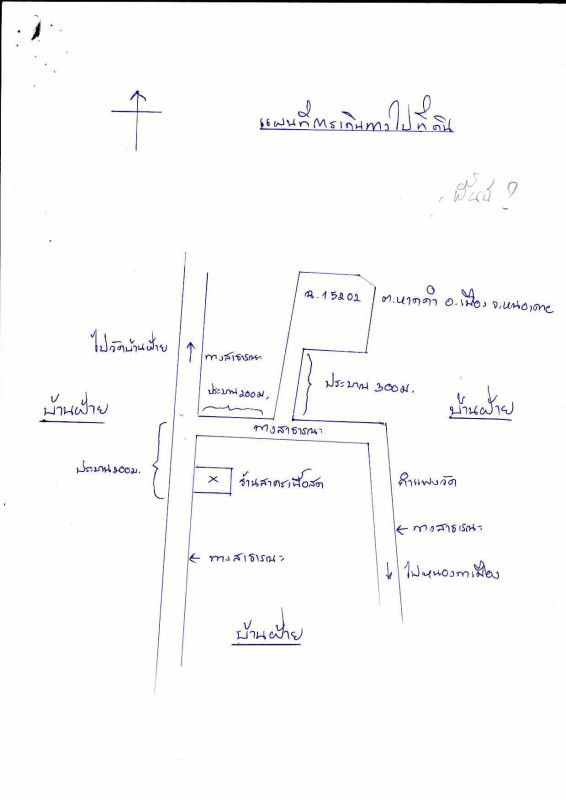 แผนที่การเดินทางไปที่ดิน
ฉ.15202 ต.หาดคำ อ.เมือง จ.หนองคาย
ไปวัดบ้านฝ้าย
ทางสาธารณะ
ประมาณ 200 ม.
ประมาณ 300 ม.
บ้านฝ้าย
บ้านฝ้าย
ทางสาธารณะ
ประมาณ 200 ม.
ร้านสาครเนื้อสด
กำแพงวัด
ทางสาธารณะ
ทางสาธารณะ
ไปหนองคายเมือง
บ้านฝ้าย